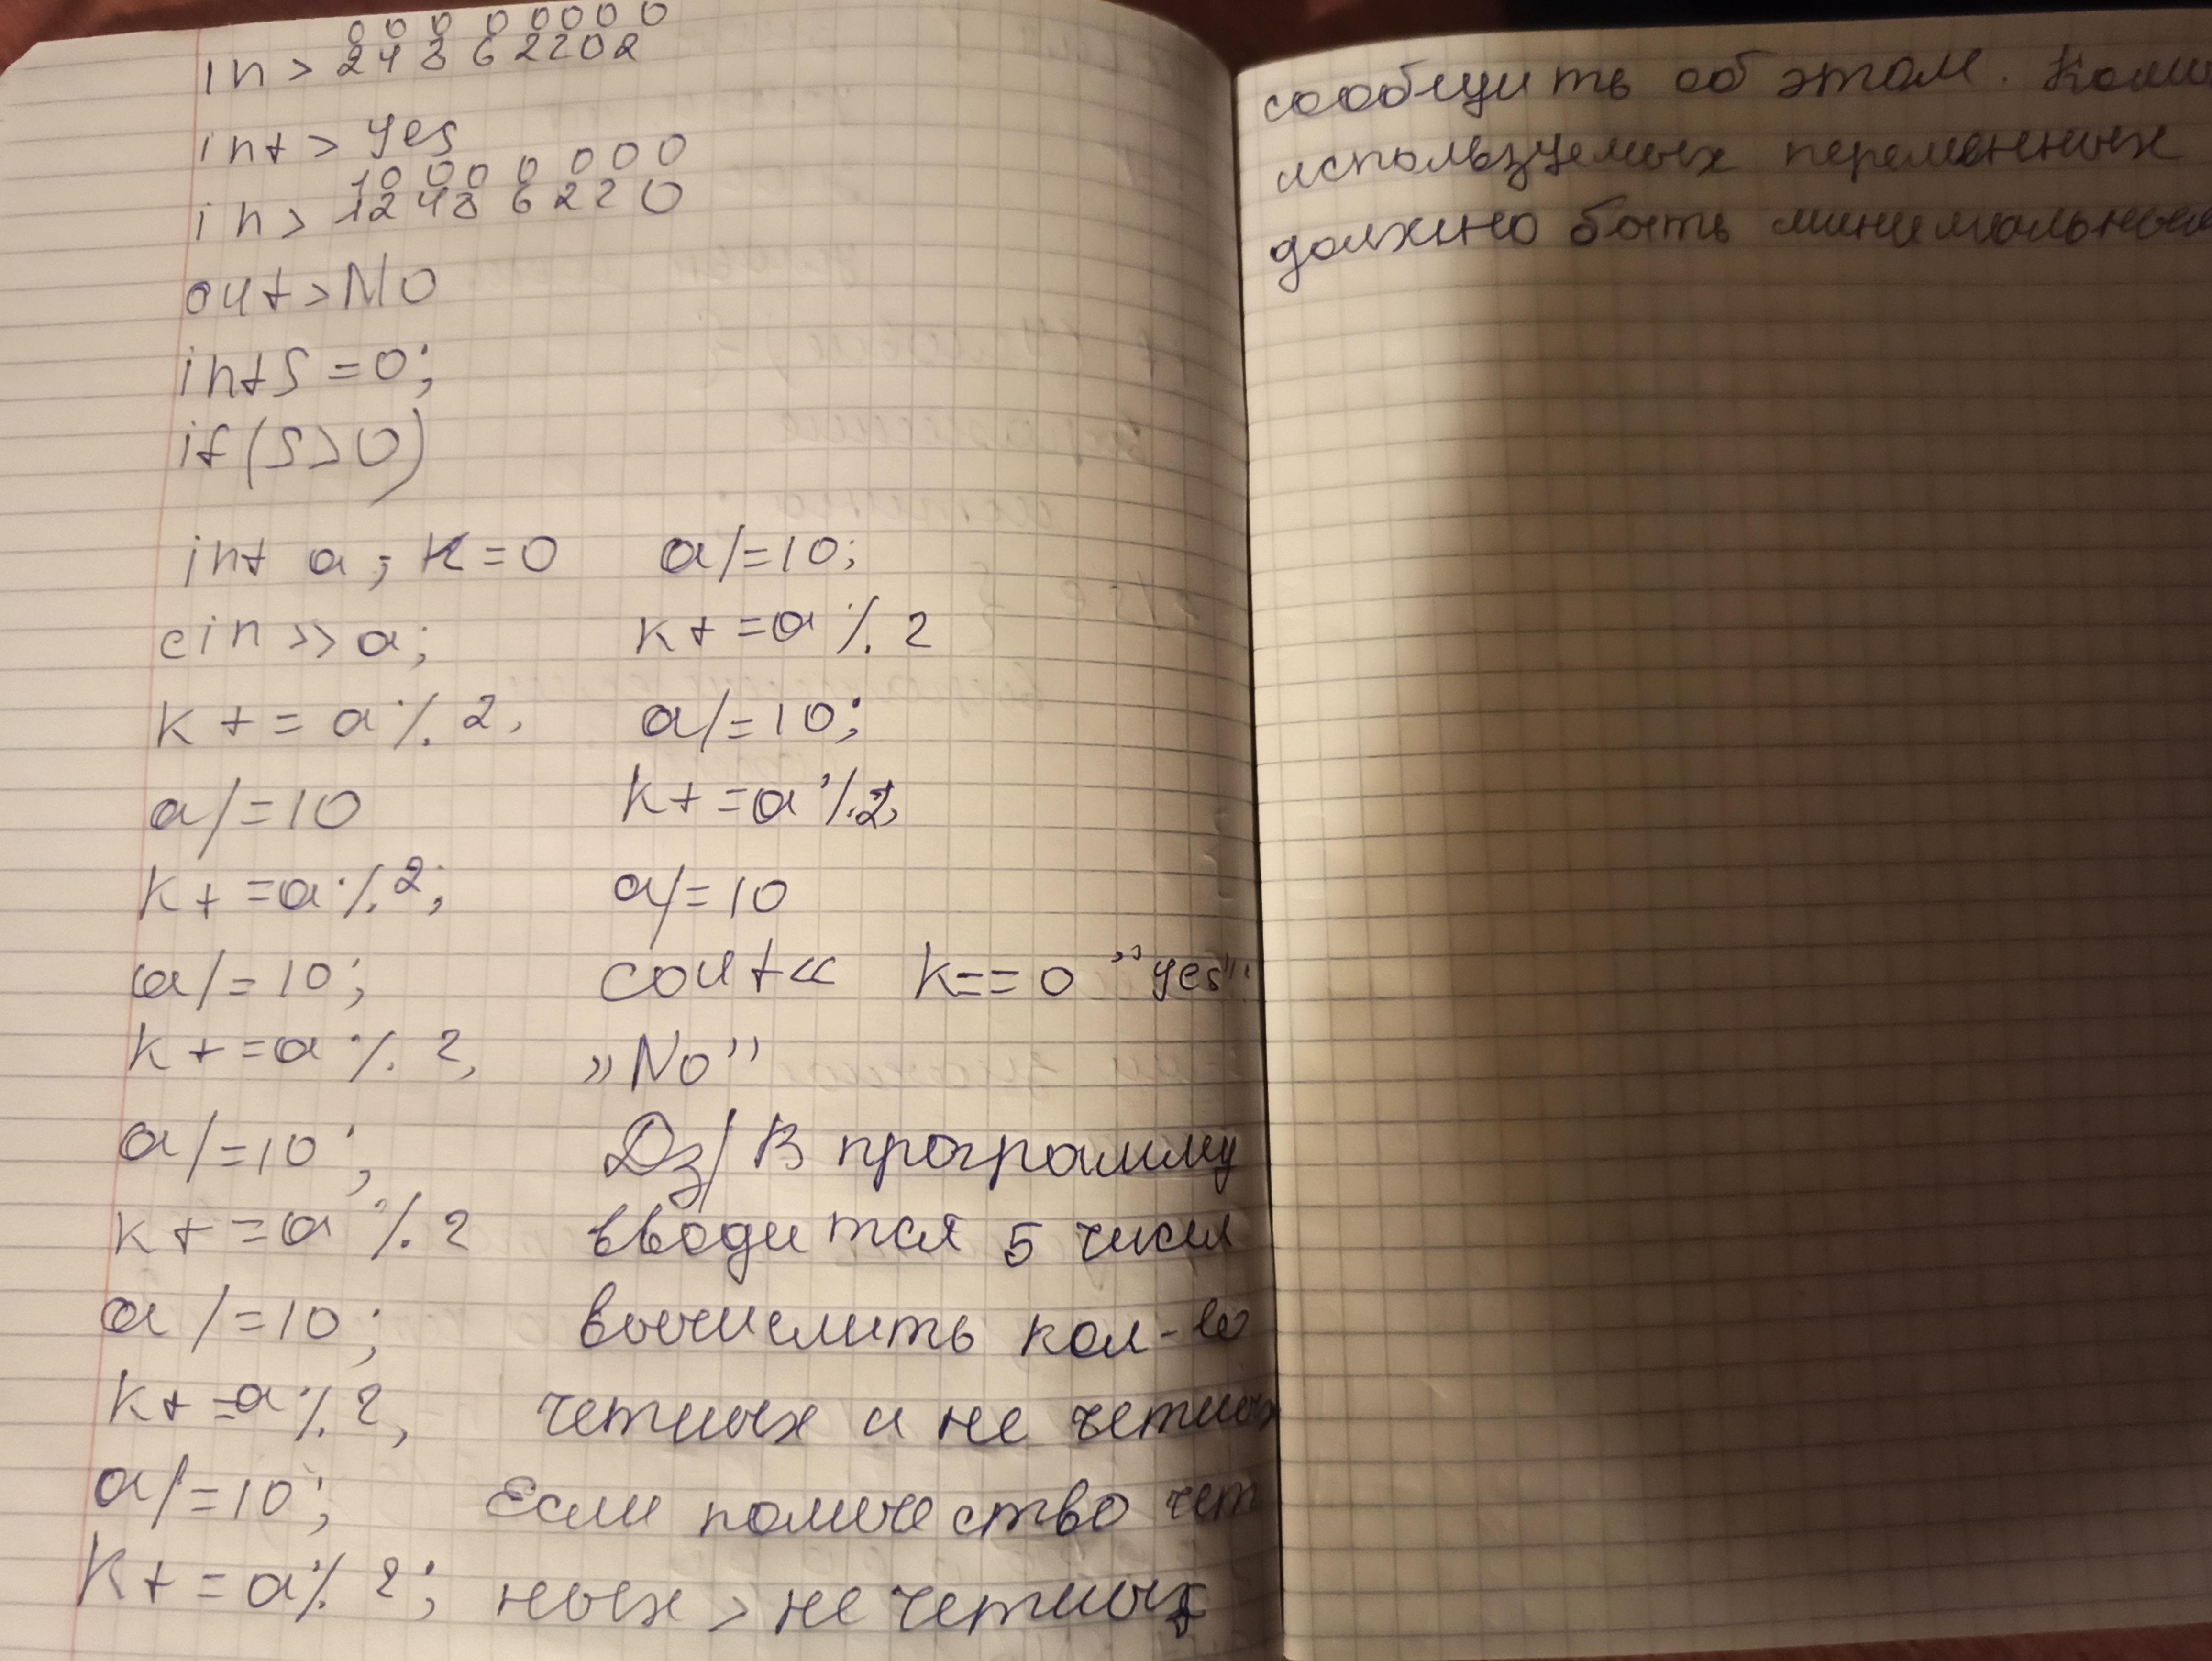 0 0 0 0 0 0 0 0
in > 2 4 8 6 2 2 0 2
int > yes
1 0 0 0 0 0 0 0
in > 1 2 4 8 6 2 2 0
out > No
int S = 0;
if (S > 0)
int a; k = 0
cin >> a;
k + = a % 2,
a / = 10
k + = a % 2;
a / = 10;
k + = a % 2,
a / = 10;
k + = a % 2
a / = 10;
k + = a % 2,
a / = 10;
k + = a % 2;
a / = 10;
k + = a % 2
a / = 10;
k + = a % 2,
a / = 10
cout << k == 0 "yes"
"No"
Дз/ В программу
вводится 5 чисел
вычислить кол-во
четных и не четных
Если количество чет
ных > не четных
сообщить об этом.
используемых переменных
должно быть